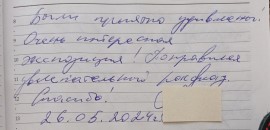 Были приятно удивлены.
Очень интересная
экспозиция! Понравился
увлекательный рассказ.
Спасибо!
26.05.2024г.